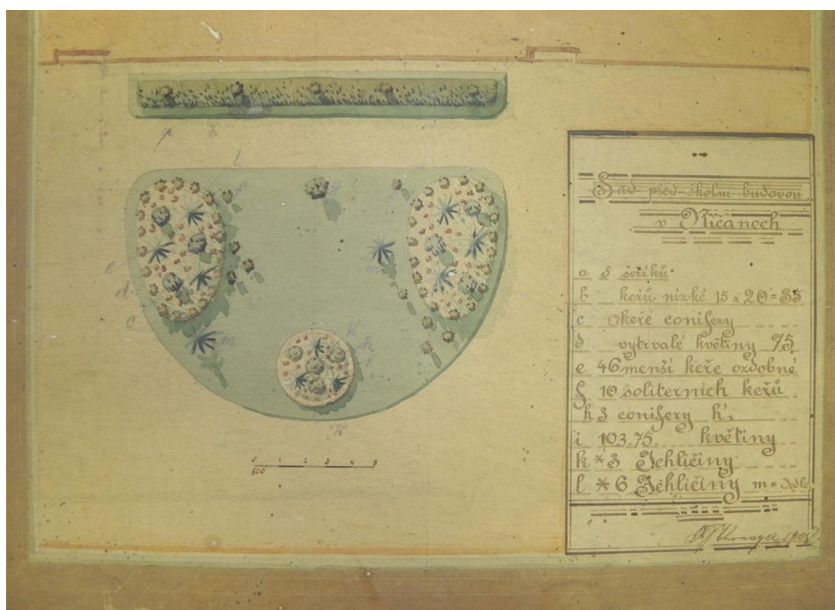 Sad před školní budovou
v Říčanech
a 5 šeříků
b keřů nízké 15 x 20 = 35
c keře conifery
d vytrvalé květiny 75
e 46 menší keře ozdobné
f 10 soliterních keřů
h 3 conifery h'2
i 103.75. květiny
k * 3 Jehličiny
l * 6 Jehličiny m = Jedle
l
m
m
K
0 1 2 3 4 5